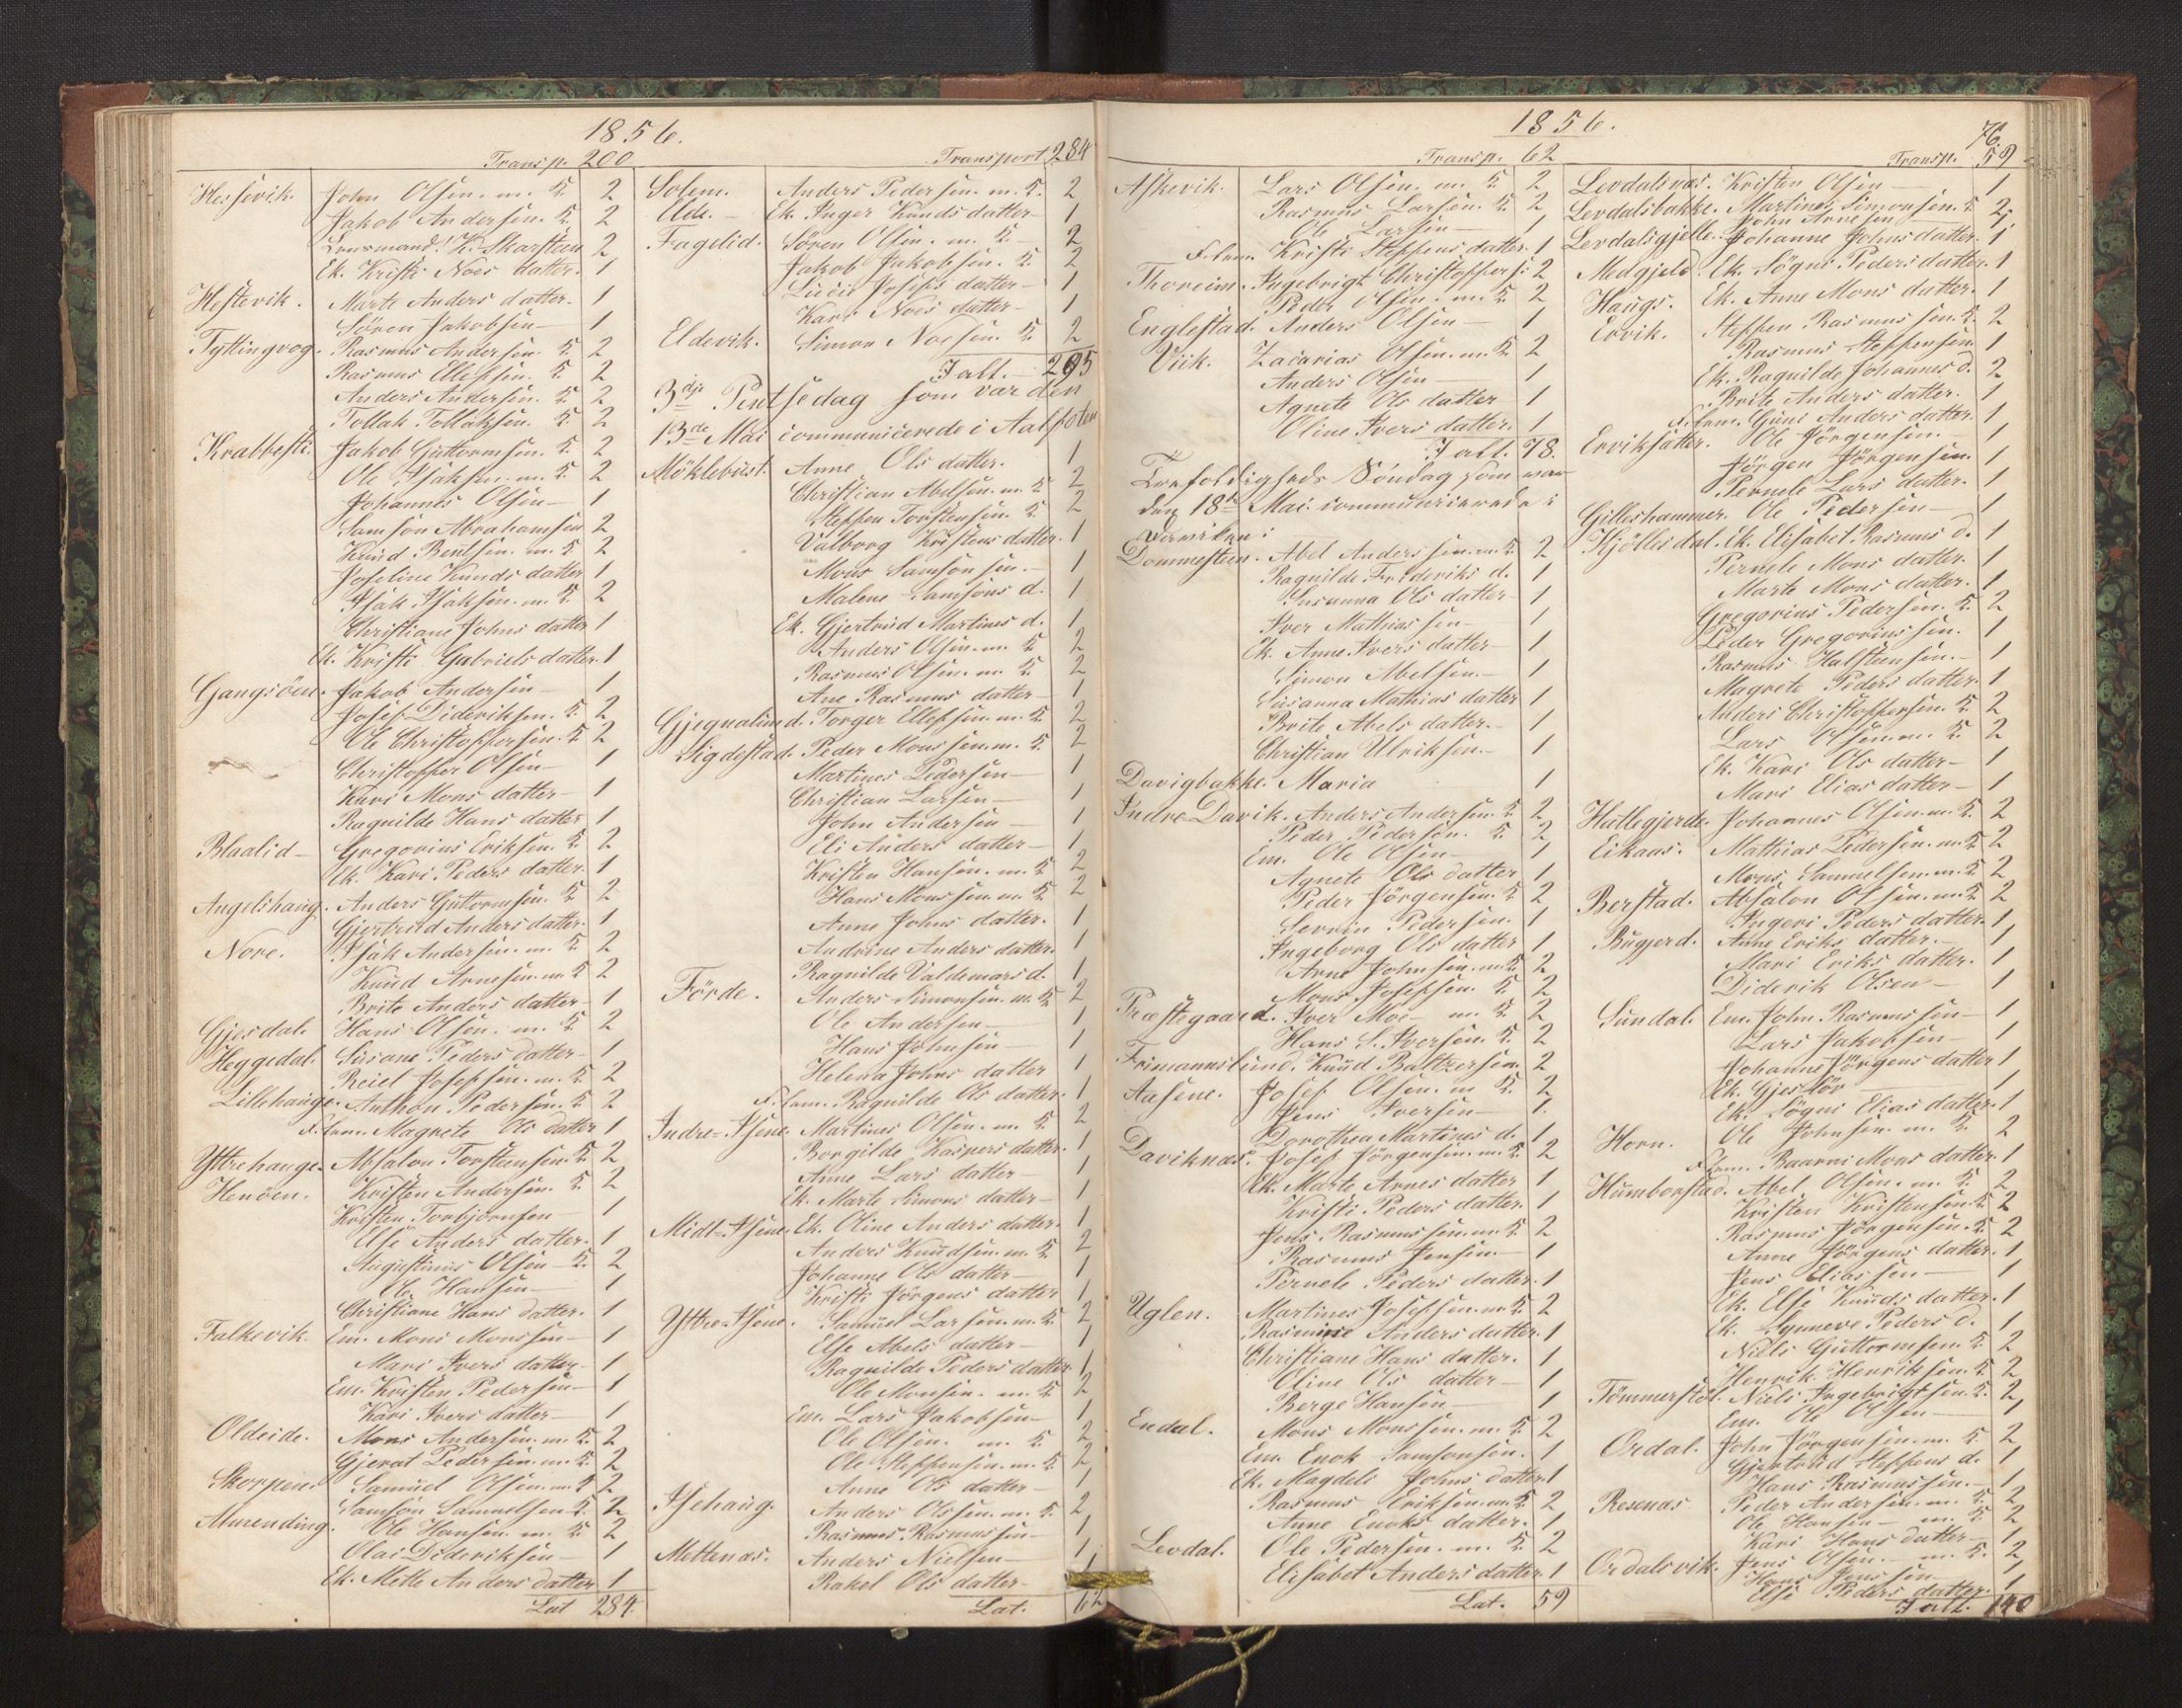 1856.
Transp. 200
Hessevik. John Olsen. m. K. 2
Jakob Andersen. K. 2
Lensmand! K. Skarsteen 2
Ek. Kristi Noes datter. 1
Hestevik. Marte Anders datter. 1
Søren Jakobsen — 1
Tyttingvog. Rasmus Andersen. K. 2
Rasmus Ellefsen. K. 2
Anders Andersen. K. 2
Tollak Tollaksen. K. 2
Krabbesti. Jakob Guttormsen. K. 2
Ole Isaksen. m. K. 2
Johannes Olsen — 1
Samson Abrahamsen 2
Knud Bentsen. m. K 2
Joseline Knuds datter 1
Isak Isaksen. m. K. 2
Christiane Johns datter 1
Ek. Kristi Gabriels datter. 1
Gangsöen. Jakob Andersen — 1
Josef Dideriksen. K. 2
Ole Christoffersen. K 2
Christoffer Olsen — 1
Kari Mons datter — 1
Ragnilde Hans datter 1
Blaalid — Gregorius Eriksen. K 2
Ek. Kari Peders datter. 1
Angelshaug. Anders Guttormsen. K 2
Gjertrud Anders datter. 1
Nore. Isak Andersen. m. K 2
Knud Arnesen. m K 2
Brite Anders datter — 1
Gjesdal. Hans Olsen. m. K 2
Heggedal. Susane Peders datter — 1
Reiel Josefsen. m. K. 2
Lillehauge. Anthon Pedersen. K 2
F. lem. Magrete Ols datter 1
Yttrehauge. Absalon Torsteensen. K. 2
Henöen. Kristen Andersen. K 2
Kristen Torbjörnsen — 1
Else Anders datter. 1
Augustinus Olsen — K. 2
Ole Hansen — 1
Christiane Hans datter. 1
Falkevik. Em. Mons Monssen — 1
Mari Ivers datter — 1
Em. Kristen Pedersen — 1
Kari Ivers datter — 1
Oldeide. Mons Andersen. m. K. 2
Gjerat Pedersen. m. K. 2
Skorpen. Samuel Olsen. m. K 2
Samson Samuelsen. K. 2
Murending. Ole Hansen. m. K 2
Olai Dideriksen — 1
Ek. Mette Anders datter 1
Lat 284.
Transport 284
Solem. Anders Pedersen. m. K. 2
Elde. — Ek. Inger Knuds datter — 1
Fagelid. Sören Olsen. m. K. — 2
Jakob Jakobsen. K. 2
Lucie Josefs datter — 1
Kari Noes datter — 1
Eldevik. Simon Noesen. K. 2
Ialt. — 295
3dje Pintsedag som var den
13de Mai communicerede i Aalfoten
Möklebust. Anne Ols datter. 1
Christian Abelsen. m. K 2
Steffen Torstensen. K 2
Valborg Kristens datter. 1
Mons Samsonsen. — 1
Malene Samsons d. 1
Ek. Gjertrud Martines d. 1
Anders Olsen. m. K 2
Rasmus Olsen. m. K 2
Ane Rasmus datter — 1
Gjegnalund. Torger Ellefsen. m. K. 2
Sigdestad. Peder Monssen. m. K. 2
Martines Pedersen — 1
Christian Larsen — 1
John Andersen — 1
Eli Anders datter — 1
Kristen Hansen. m. K 2
Hans Monssen. m. K 2
Anne Johns datter. 1
Andrine Anders datter. 1
Ragnilde Valdemars d. 1
Förde. Anders Simonsen. m. K 2
Ole Andersen — 1
Hans Johnsen — 1
Helena Johns datter 1
F. lem. Ragnilde Ols datter. 1
Indre-Isene. Martines Olsen. m. K 2
Borgilde Kaspers datter. 1
Anne Lars datter — 1
Ek. Marte Simons datter — 1
Midt-Isene. Ek. Oline Anders datter. 1
Anders Knudsen. m. K. 2
Johanne Ols datter — 1
Kristi Jörgens datter 1
Yttre-Isene. Samuel Larsen. m. K. 2
Else Abels datter — 1
Ragnilde Peders datter 1
Ole Monsen. m. K 2
Em. Lars Jakobsen 1
Ole Olsen. m. K. 2
Ole Steffensen. m. K 2
Anne Ols datter — 1
Isehaug. Anders Olssen. m. K. 2
Rasmus Rasmussen — 1
Mettenæs. Anders Nielsen — 1
Rakel Ols datter — 1
Lat. 62
1856.
76.
Transp. 62
Askevik. Lars Olsen. m. K. 2
Rasmus Larsen. K. 2
Ole Larsen — 1
F. lem. Kristi Steffens datter. 1
Thoreim. Ingebrigt Christoffers: 2
Peder Olsen. m. K. 2
Englestad. Anders Olsen — 1
Viik. Zacarias Olsen. m. K. 2
Anders Olsen — 1
Agnete Ols datter 1
Oline Ivers datter. 1
Ialt. 78.
Trefoldigheds Söndag som var
den 18de Mai communicerede i
Daviken:
Dommesteen. Abel Anderssen. m. K. 2
Ragnilde Frideriks d. 1
Susanna Ols datter 1
Iver Mathiassen — 1
Ek. Anne Ivers datter — 1
Simon Abelsen — 1
Susanna Mathias datter 1
Brite Abels datter. — 1
Christian Ulriksen. — 1
Davigbakke. Maria 1
Indre Davik. Anders Andersen. K. 2
Peder Pedersen. K. 2
Em. Ole Olsen — 1
Agnete Ols datter 1
Peder Jörgensen. K 2
Severin Pedersen. 1
Ingeborg Ols datter 1
Arne Johnsen. m. K 2
Mons Josefsen. K. 2
Præstegaard. Iver Moe — m. K. 2
Hans S. Iversen. K. 2
Frimannslund. Knud Baltzersen. 2
Aasene. Josef Olsen. m K. 2
Jens Iversen — 1.
Dorothea Martines d. 1
Daviknæs. Josef Jörgensen. m. K. 2
Ek. Marte Arnes datter 1
Kristi Peders datter. 1
Jens Rasmussen. m. K 2
Rasmus Jensen. — 1
Pernele Peders datter. 1
Uglen. Martines Josefsen. m. K. 2
Rasmine Anders datter. 1
Christiane Hans datter. 1
Oline Ols datter — 1
Berge Hansen — 1
Endal. Mons Monssen. m. K 2
Em. Enok Samsonsen. 1
Ek. Magdeli Johns datter. 1
Rasmus Eriksen. m. K 2
Anne Enoks datter. 1
Levdal. Ole Pedersen. m. K 2
Elisabet Anders datter. 1
Lat. 59
Transp. 59
Levdalsnæs. Kristen Olsen — 1
Levdalsbakke. Martines Simonsen. K 2
John Arnesen — 1
Levdalsgjelle. Johanne Johns datter. 1
Medgjeld. Ek. Sögni Peders datter. 1
Haugs. Ek. Anne Mons datter. 1
Ervik. Steffen Rasmussen. K. 2
Rasmus Steffensen. 1
Ek. Ragnilde Johannes d. 2
Brite Anders datter. 1
F. lem. Guni Anders datter. 1
Erviksætter. Ole Jörgensen. — 1
Jörgen Jörgensen. 1
Pernele Lars datter. 1
Gilleshammer. Ole Pedersen — 1
Kjöllesdal. Ek. Elisabet Rasmus d. 1
Pernele Mons datter. 1
Marte Mons datter. 1
Gregorius Pedersen. K. 2
Peder Gregoriussen. 1
Rasmus Halsteensen. — 1
Magrete Peders datter. 1
Anders Christoffersen. K 2
Lars Olsen. m. K 2
Ek. Kari Ols datter — 1
Mari Elias datter — 1
Hallegjerde. Johannes Olsen. m. K. 2
Eikaas. Mathias Pedersen. m. K 2
Mons Samuelsen. m. K 2
Berstad. Absalon Olsen. m. K 2
Ingeri Peders datter. 1
Bugjerd. Anne Eriks datter. — 1
Mari Eriks datter. 1
Diderik Olsen — 1
Sundal. Em. John Rasmussen — 1
Lars Jakobsen — 1
Johanne Jörgens datter 1
Ek. Gjeslör 1
Ek. Sögni Elias datter. 1
Horn. Ole Johnsen. m. K. 2
F. lem. Baarni Mons datter. 1
Humborstad. Abel Olsen. m. K 2
Kristen Kristensen. K 2
Rasmus Jörgensen. K. 2
Anne Jörgens datter. 1
Jens Eliassen — 1
Ek. Else Knuds datter. 1
Ek. Synneve Peders d. 1
Niels Guttormsen. K 2
Henrik Henriksen. K 2
Tömmerstöl. Niels Ingebrigtsen. K. 2
Em. Ole Olsen — 1
Ordal. John Jörgensen. m. K 2
Gjertrud Steffens d. 1
Hans Rasmussen. — 1
Resenæs Peder Andersen. m. K 2
Ole Hansen — m. K 2
Kari Hans datter — 1
Ordalsvik. Jens Olsen. — m. K. 2
Hans Jenssen 1
Else Peders datter. 1
Ialt. 140